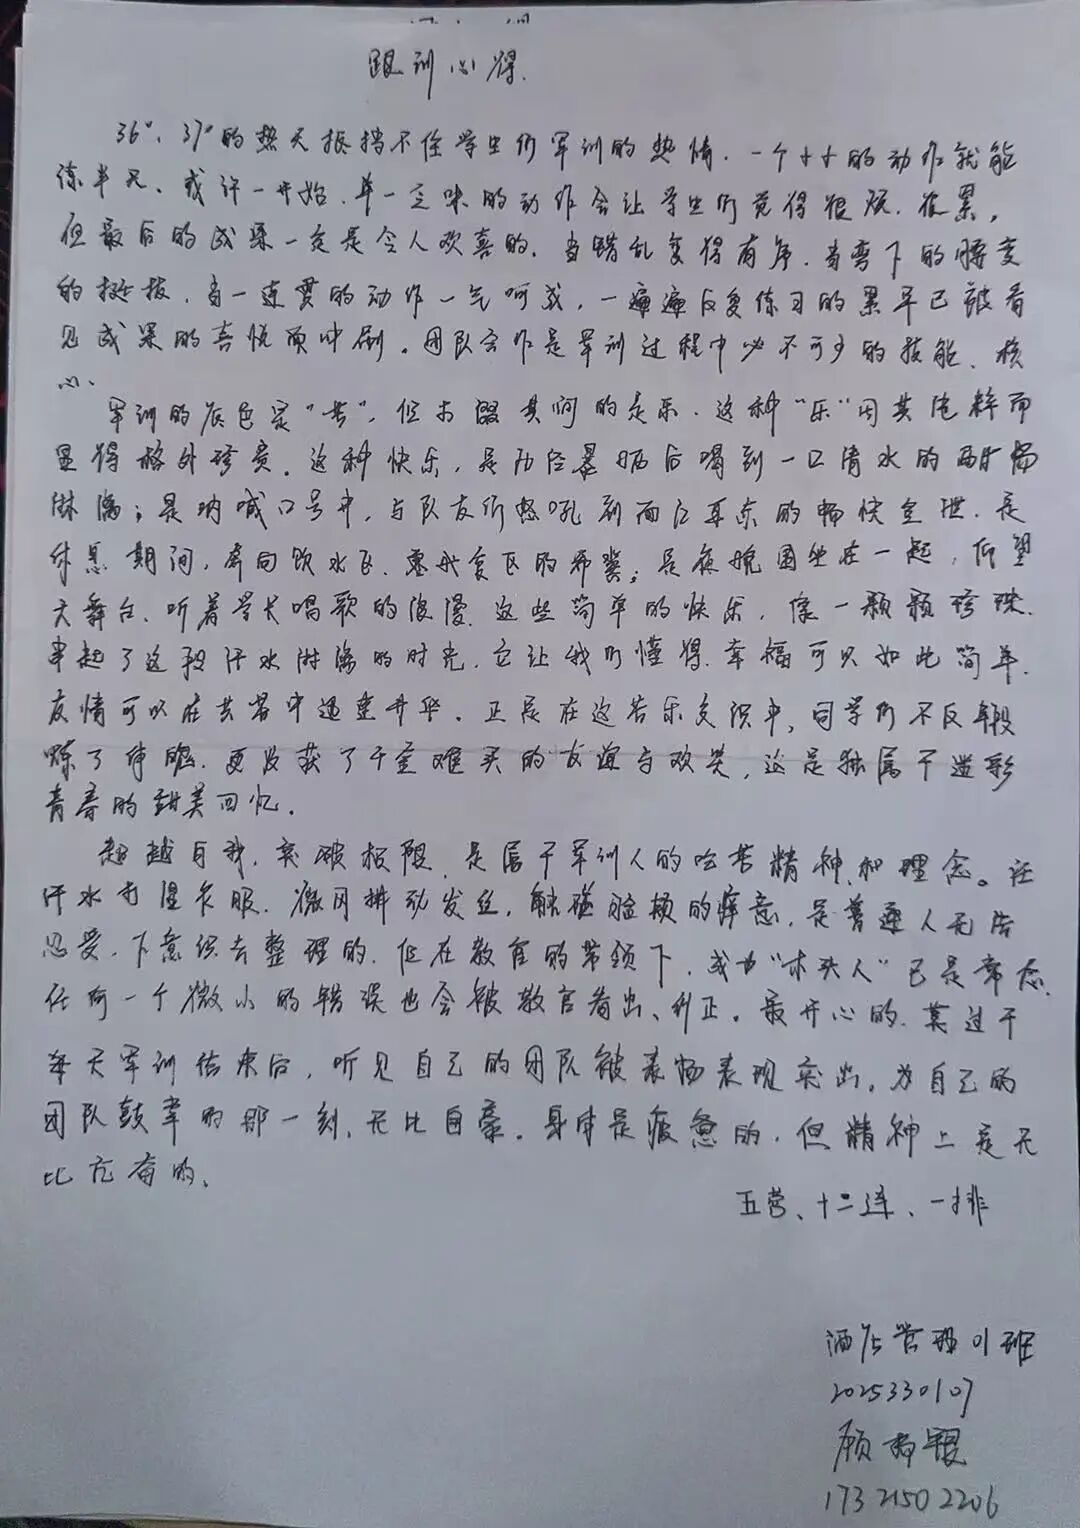 跟训心得.
36°、37°的热天抵挡不住学生们军训的热情.一个小小的动作就能
练半天、或许一开始.单一乏味的动作会让学生们觉得很烦.很累。
但最后的成果一定是令人欢喜的.当错乱变得有序.当弯下的腰变
的挺拔.当一连贯的动作一气呵成,一遍遍反复练习的累早已被看
见成果的喜悦而冲刷。团队合作是军训过程中必不可少的技能、核
心.
军训的底色是"苦",但点缀其间的是乐.这种"乐"因其纯粹而
显得格外珍贵。这种快乐,是历经暴晒后喝到一口清水的酣畅
淋漓;是呐喊口号中,与队友们怒吼到面红耳赤的畅快宣泄.是
休息期间,奔向饮水区、
的希冀;是夜晚围坐在一起,仰望
大舞台、听着学长唱歌的浪漫.这些简单的快乐,像一颗颗珍珠.
串起了这段汗水淋漓的时光.它让我们懂得.幸福可以如此简单.
友情可以在共苦中迅速升华。正是在这苦乐交织中,同学们不仅锻
炼了体魄.更收获了千金难买的友谊与欢笑,这是独属于
青春的甜美回忆。
超越自我.突破极限.是属于军训人的吃苦精神和理念。让
汗水打湿衣服.微风拂动发丝,触碰脸颊的痒意.是普通人无法
忍受,下意识去整理的.但在教官的带领下,成为"木头人"已是常态.
任何一个微小的错误也会被教官看出、纠正。最开心的.莫过于
每天军训结束后,听见自己的团队被表扬表现突出。为自己的
团队鼓掌的那一刻、无比自豪。身体是疲惫的.但精神上是无
比亢奋的、
五营、十二连、一排
酒店管理01班
2025330107
顾
17321502206